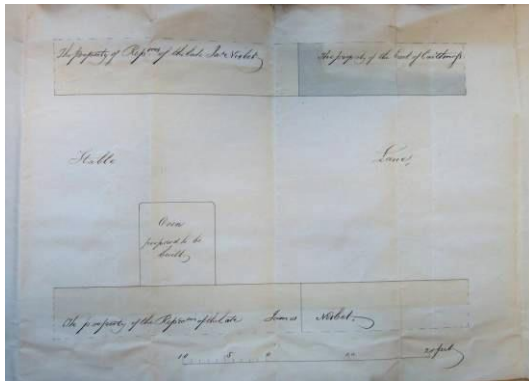 The property of Reps of the late Jas Nisbet
The property of the Earl of
Stable Lane
Oven
proposed to be
built
The property of the Represes of the late James Nisbet
10 5 0 10 20 feet